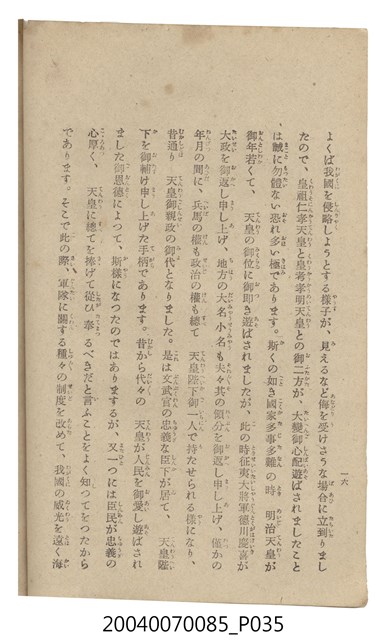 一六
よくば我國を侵略しようとする樣子が、見えるなど侮を受けさうな場合に立到りまし
たので、皇祖仁孝天皇と皇考孝明天皇との御二方が、大變御心配遊ばされましたこと
は誠に勿體ない恐れ多い極であります。斯くの如き國家多事多難の時　明治天皇が
御年若くて、　天皇の御位に御卽き遊ばされましたが、此の時征夷大將軍德川慶喜が
大政を御返し申し上げ、地方の大名小名も夫々其の領分を御返し申し上げ、僅かの
年月の間に、兵馬の權も政治の權も總て　天皇陛下御一人で持たせられる樣になり、
昔通り　天皇御親政の御代となりました。是は文武官の忠義な臣下が居て、　天皇陛
下を御輔け申し上げた手柄であります。昔から代々の　天皇が人民を御愛し遊ばされ
ました御恩德によつて、斯樣になつたのではありまするが、又一つには臣民が忠義の
心厚く、　天皇に總てを捧げて從ひ奉るべきだと言ふことをよく知つてをつたから
であります。そこで此の際、軍隊に關する種々の制度を改めて、我國の威光を遠く海
20040070085_P035